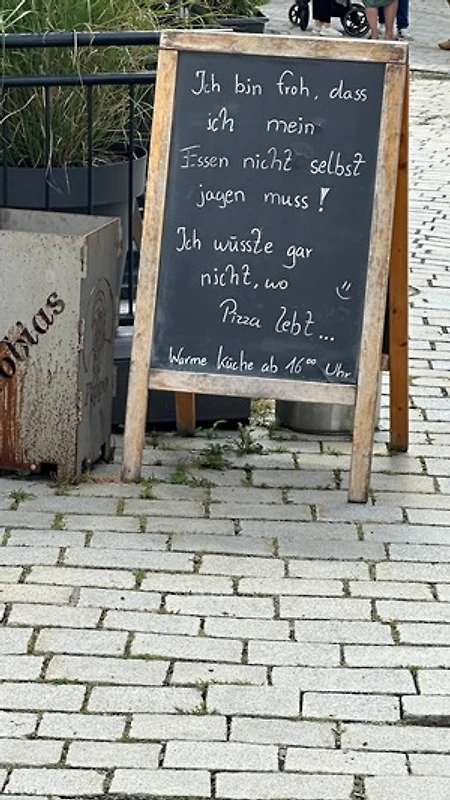 Ich bin froh, dass
ich mein
Essen nicht selbst
jagen muss!
Ich wüsste gar
nicht, wo
Pizza lebt...
Warme Küche ab 16⁰⁰ Uhr
obias